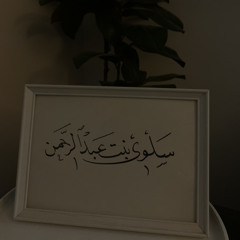 سلوى بنت عبدالرحمن